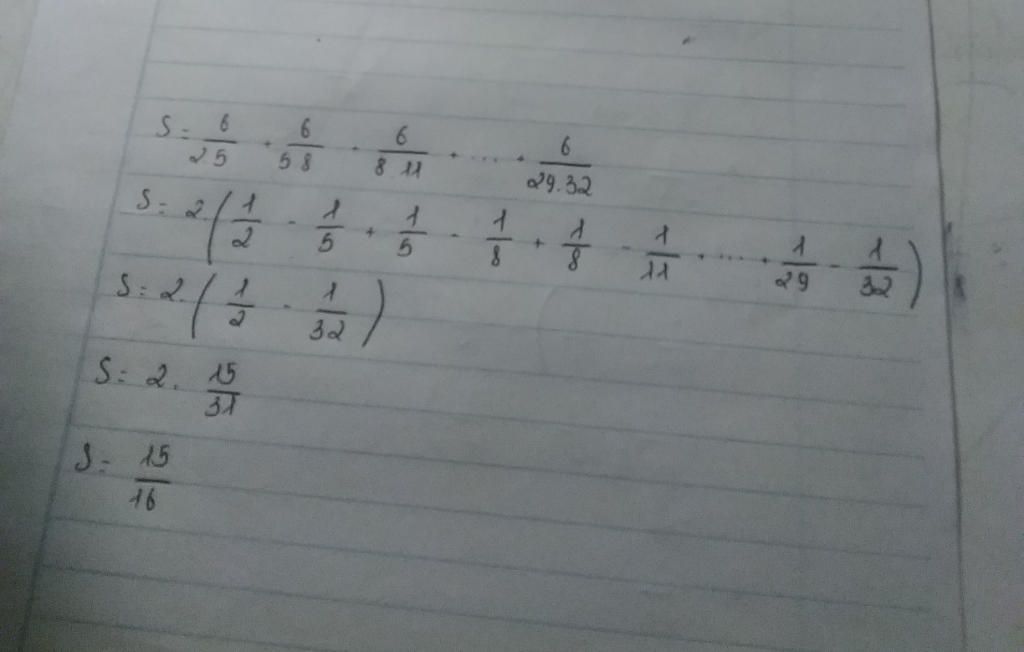 S = 6/2.5 + 6/5.8 + 6/8.11 + ... + 6/29.32
S = 2.(1/2 - 1/5 + 1/5 - 1/8 + 1/8 - 1/11 + ... + 1/29 - 1/32)
S = 2.(1/2 - 1/32)
S = 2. 15/31
S = 15/16